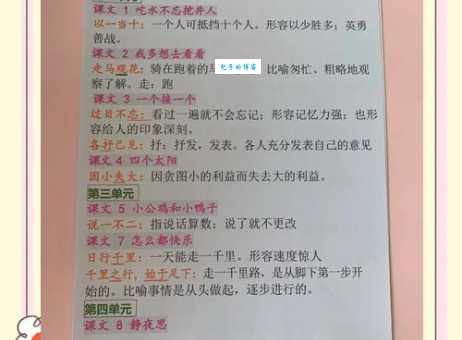 课文 1 吃水不忘挖井人
以一当十：一个人可抵挡十个人。形容以少胜多；英勇
善战。
课文 2 我多想去看看
走马观花：骑在跑着的 比喻匆忙、粗略地观
察了解。走：跑
课文 3 一个接一个
过目不忘：看过一遍就不会忘记；形容记忆力强；也形
容给人的印象深刻。
各抒己见：抒：抒发，发表。各人充分发表自己的意见
课文 4 四个太阳
因小失大：因贪图小的利益而失去大的利益。
第三单元
课文 5 小公鸡和小鸭子
说一不二：指说话算数；说了就不更改
课文 7 怎么都快乐
日行千里：一天能走一千里。形容速度惊人
千里之行，始于足下：走一千里路，是从脚下第一步开
始的。比喻事情是从头做起，逐步进行的。
第四单元
课文 8 静夜思